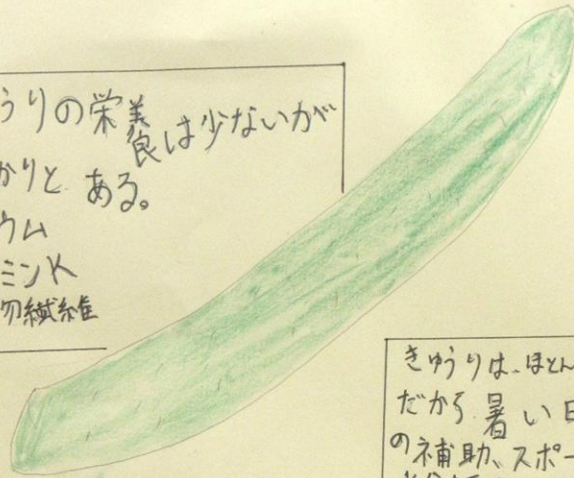 うりの栄養は少ないが
かりと ある。
ウム
ミンK
物繊維
きゅうりは、ほとん
だから 暑い日
の補助、スポー